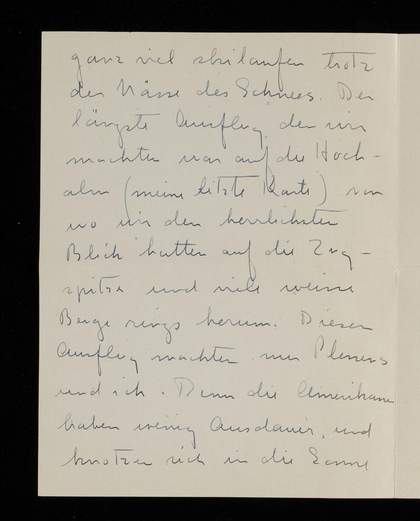 ganz viel skilaufen trotz
der Nässe des Schnees. Der
längste Ausflug, den wir
machten war auf die Hoch-
alm (meine letzte Karte) von
wo wir den herrlichsten
Blick hatten auf die Zug-
spitze und viele weisse
Berge rings herum. Diesen
Ausflug machten nur
und ich. Denn die Amerikaner
haben wenig Ausdauer, und
knotzen sich in die Sonne